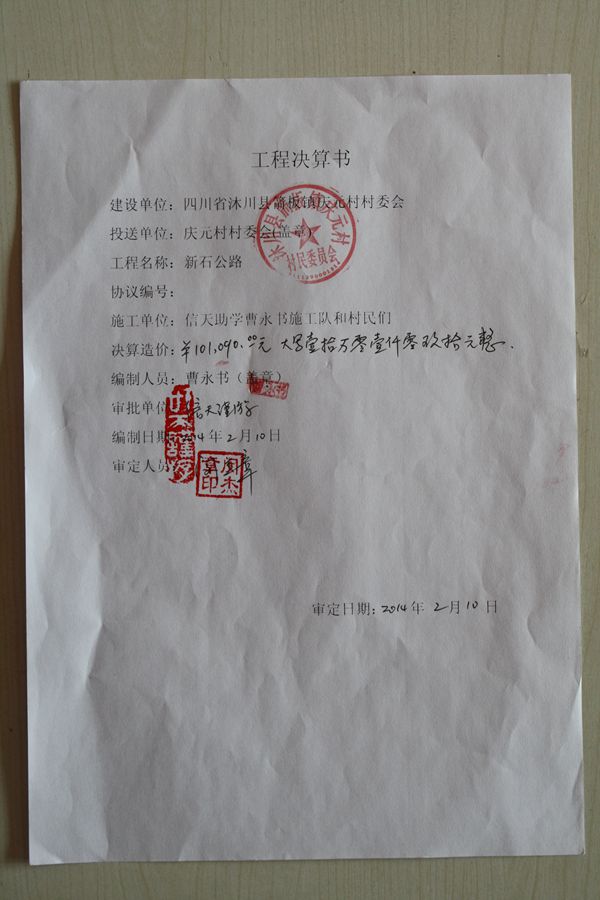 工程决算书
建设单位：四川省沐川县箭板镇庆元村村委会
投送单位：庆元村村委会(盖章)
沐川县箭板镇庆元村
村民委员会
工程名称：新石公路
协议编号：
施工单位：信天助学曹永书施工队和村民们
决算造价：¥101,090.00元 大写壹拾万零壹仟零玖拾元整.
编制人员：曹永书（盖章）
审批单位：信天
编制日期：2014年2月10日
审定人员
审定日期：2014年2月10日